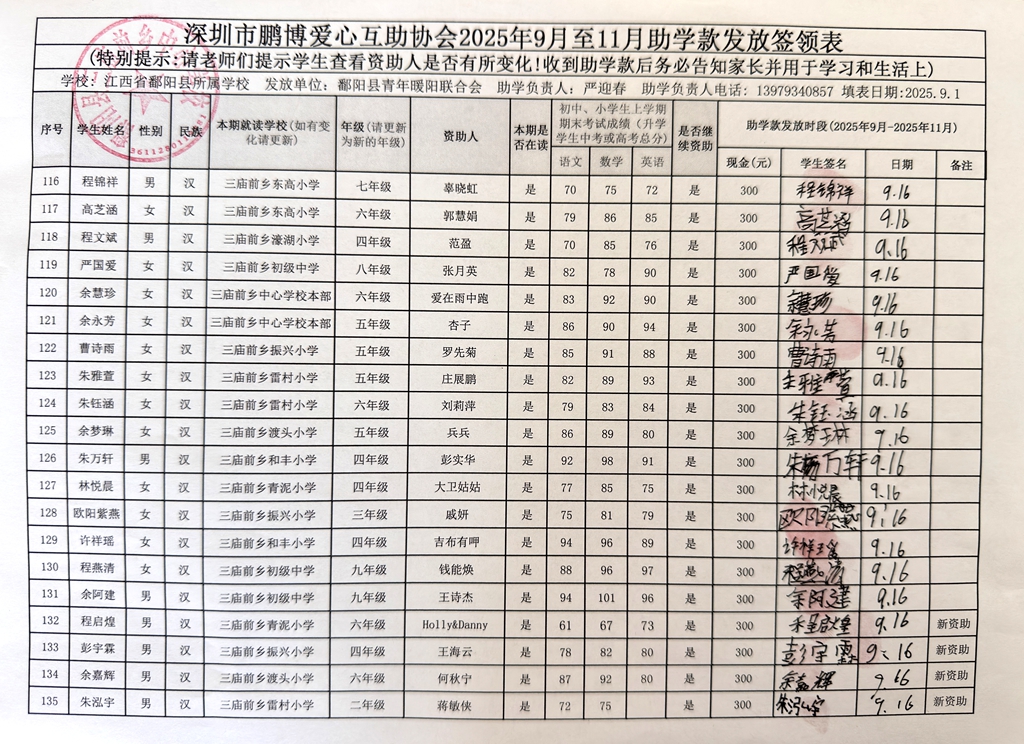 深圳市鹏博爱心互助协会2025年9月至11月助学款发放签领表
(特别提示:请老师们提示学生查看资助人是否有所变化!收到助学款后务必告知家长并用于学习和生活上)
学校：江西省鄱阳县所属学校 发放单位：鄱阳县青年暖阳联合会 助学负责人：严迎春 助学负责人电话：13979340857 填表日期:2025.9.1
序号 学生姓名 性别 民族 本期就读学校(如有变化请更新) 年级(请更新为新的年级) 资助人 本期是否在读 初中、小学生上学期期末考试成绩（升学学生中考或高考总分） 是否继续资助 助学款发放时段(2025年9月-2025年11月)
语文 数学 英语 现金(元) 学生签名 日期 备注
116 程锦祥 男 汉 三庙前乡东高小学 七年级 辜晓虹 是 70 75 72 是 300 程锦祥 9.16
117 高芝涵 女 汉 三庙前乡东高小学 六年级 郭慧娟 是 79 86 85 是 300 高芝涵 9.16
118 程文斌 男 汉 三庙前乡濠湖小学 四年级 范盈 是 70 85 76 是 300 程文斌 9.16
119 严国爱 女 汉 三庙前乡初级中学 八年级 张月英 是 82 78 90 是 300 严国爱 9.16
120 余慧珍 女 汉 三庙前乡中心学校本部 六年级 爱在雨中跑 是 83 92 90 是 300 余慧珍 9.16
121 余永芳 女 汉 三庙前乡中心学校本部 五年级 杏子 是 86 90 94 是 300 余永芳 9.16
122 曹诗雨 女 汉 三庙前乡振兴小学 五年级 罗先菊 是 85 91 88 是 300 曹诗雨 9.16
123 朱雅萱 女 汉 三庙前乡雷村小学 五年级 庄展鹏 是 82 89 93 是 300 朱雅萱 9.16
124 朱钰涵 女 汉 三庙前乡雷村小学 六年级 刘莉萍 是 79 83 84 是 300 朱钰涵 9.16
125 余梦琳 女 汉 三庙前乡渡头小学 五年级 兵兵 是 86 89 80 是 300 余梦琳 9.16
126 朱万轩 男 汉 三庙前乡和丰小学 四年级 彭实华 是 92 98 91 是 300 朱万轩 9.16
127 林悦晨 女 汉 三庙前乡青泥小学 四年级 大卫姑姑 是 77 85 75 是 300 林悦晨 9.16
128 欧阳紫燕 女 汉 三庙前乡振兴小学 三年级 戚妍 是 75 81 79 是 300 欧阳紫燕 9.16
129 许祥瑶 女 汉 三庙前乡和丰小学 四年级 吉布有呷 是 94 96 89 是 300 许祥瑶 9.16
130 程燕清 女 汉 三庙前乡初级中学 九年级 钱能焕 是 88 96 97 是 300 程燕清 9.16
131 余阿建 男 汉 三庙前乡初级中学 九年级 王诗杰 是 94 101 96 是 300 余阿建 9.16
132 程启煌 男 汉 三庙前乡青泥小学 六年级 Holly&Danny 是 61 67 73 是 300 程启煌 9.16 新资助
133 彭宇霖 男 汉 三庙前乡振兴小学 四年级 王海云 是 78 82 80 是 300 彭宇霖 9.16 新资助
134 余嘉辉 男 汉 三庙前乡渡头小学 六年级 何秋宁 是 87 92 80 是 300 余嘉辉 9.16 新资助
135 朱泓宇 男 汉 三庙前乡雷村小学 二年级 蒋敏侠 是 72 75 是 300 朱泓宇 9.16 新资助